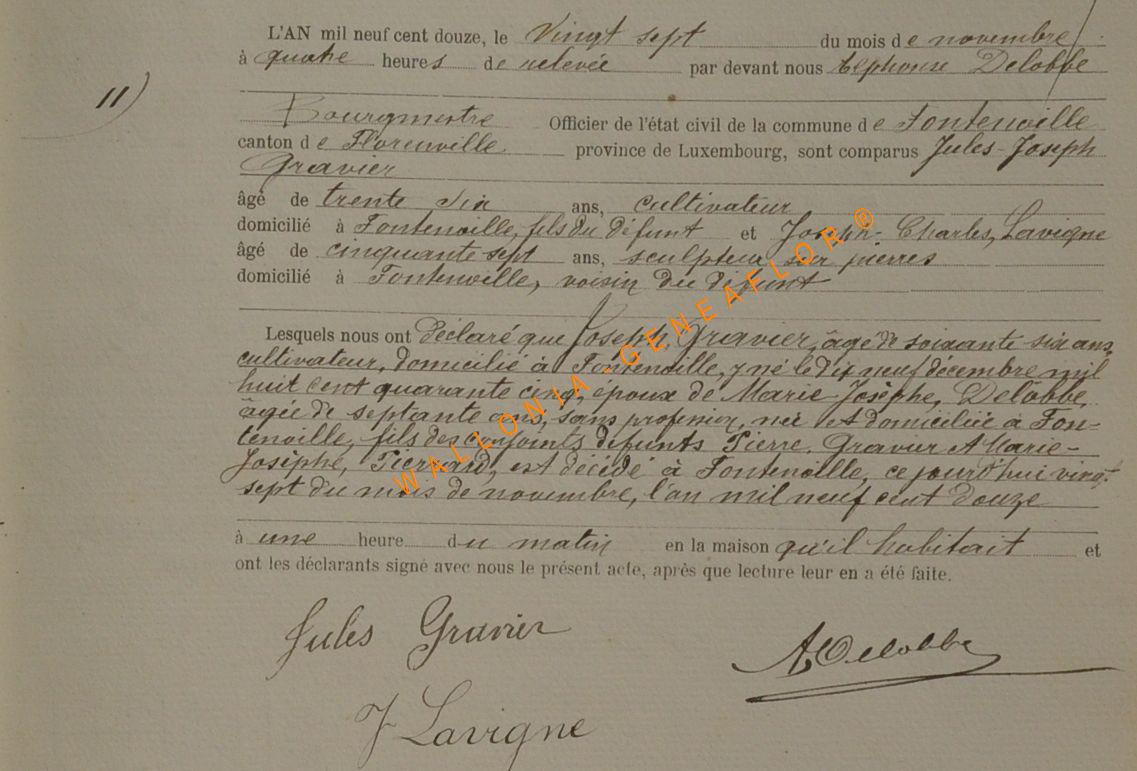 L'AN mil neuf cent douze, le Vingt sept du mois de novembre
à quatre heures de relevée par devant nous Alphonse Delobbe
11)
Bourgmestre Officier de l'état civil de la commune de Fontenoille
canton de Florenville province de Luxembourg, sont comparus Jules-Joseph
Gravier
âgé de trente six ans, cultivateur
domicilié à Fontenoille, fils du défunt et Joseph-Charles, Lavigne
âgé de cinquante sept ans, sculpteur sur pierres
domicilié à Fontenoille, voisin du défunt
Lesquels nous ont déclaré que Joseph Gravier, âgé de soixante-six ans,
cultivateur, domicilié à Fontenoille, y né le dix neuf décembre mil
huit cent quarante cinq, époux de Marie Josèphe, Delobbe,
âgée de septante ans, sans profession, née et domiciliée à Fon-
tenoille, fils des conjoints défunts Pierre, Gravier et Marie-
Josèphe, Pierrard, est décédé à Fontenoille, ce jourd'hui vingt
sept du mois de novembre, l'an mil neuf cent douze
à une heure du matin en la maison qu'il habitait et
ont les déclarants signé avec nous le présent acte, après que lecture leur en a été faite.
Jules Gravier
ADelobbe
J Lavigne
WALLONIA-GENEAFLOR®